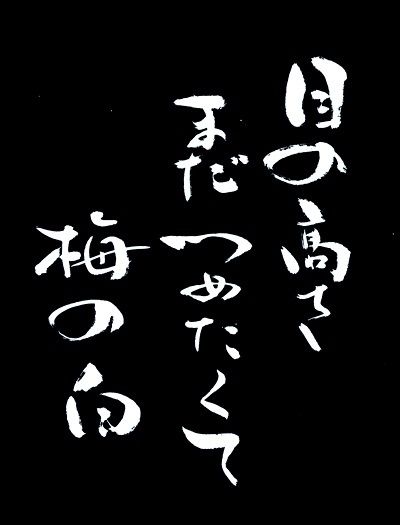 目の高さ
まだつめたくて
梅の白